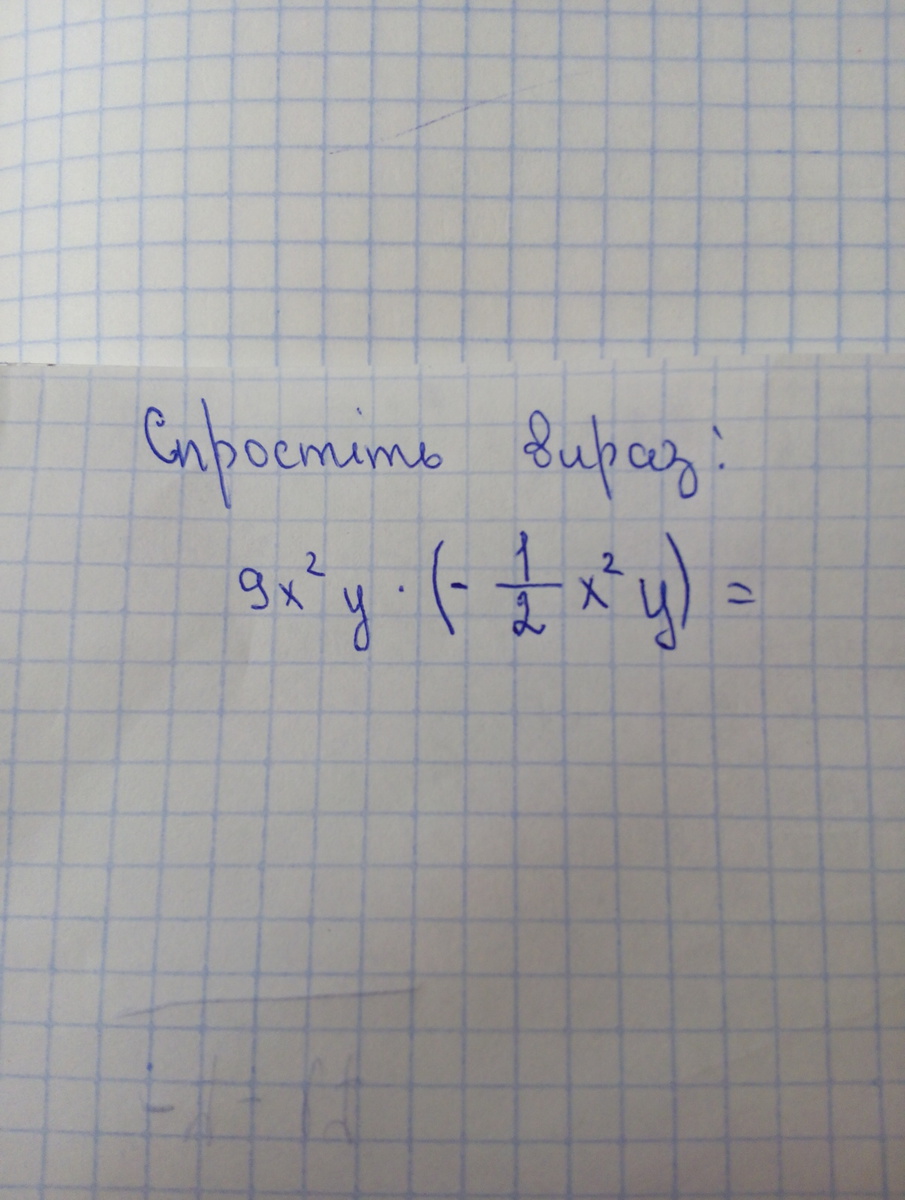 Спростіть вираз:
9x² y · (- 1/2 x² y) =